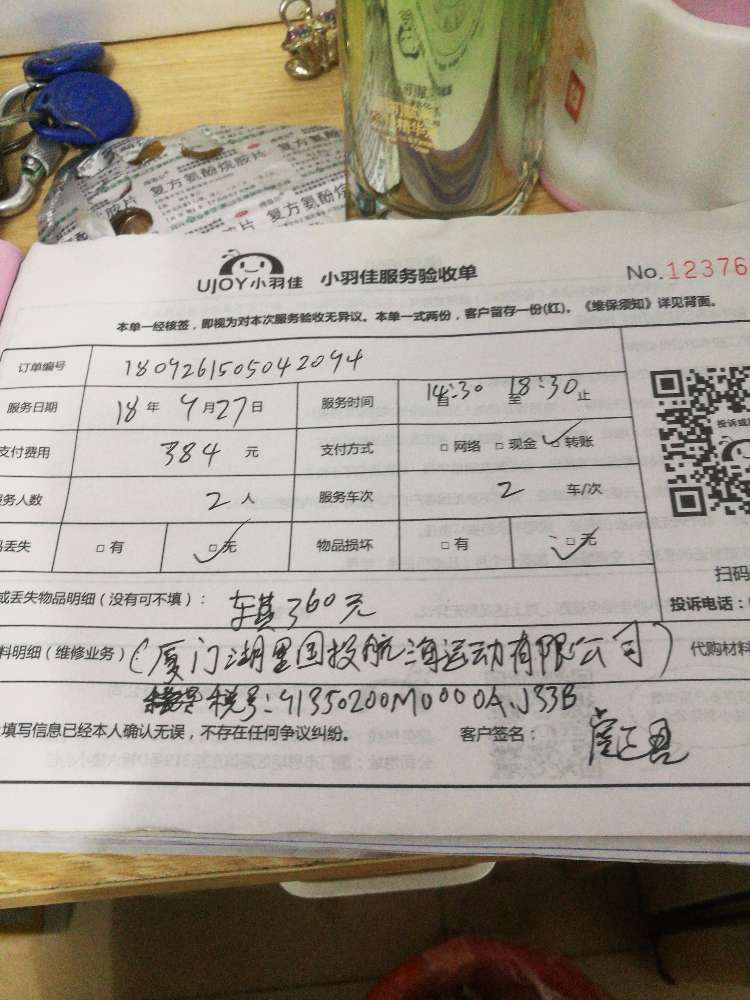 复方氨酚烷胺片
复方氨酚烷
胺片
UJOY小羽佳 小羽佳服务验收单 No.12376
本单一经核签，即视为对本次服务验收无异议。本单一式两份，客户留存一份(红)。《维保须知》详见背面。
订单编号 1809261505042094
服务日期 18年9月27日 服务时间 14:30 至 18:30 止
支付费用 384 元 支付方式 □网络 □现金 □转账
务人数 2人 服务车次 2 车/次
丢失 □有 □无 物品损坏 □有 □无
投诉或
或丢失物品明细（没有可不填）： 车费360元
扫码
投诉电话：
料明细（维修业务） (厦门湖里国投航海运动有限公司) 代购材料
税号:91350200M0000AJ33B
填写信息已经本人确认无误，不存在任何争议纠纷。 客户签名：